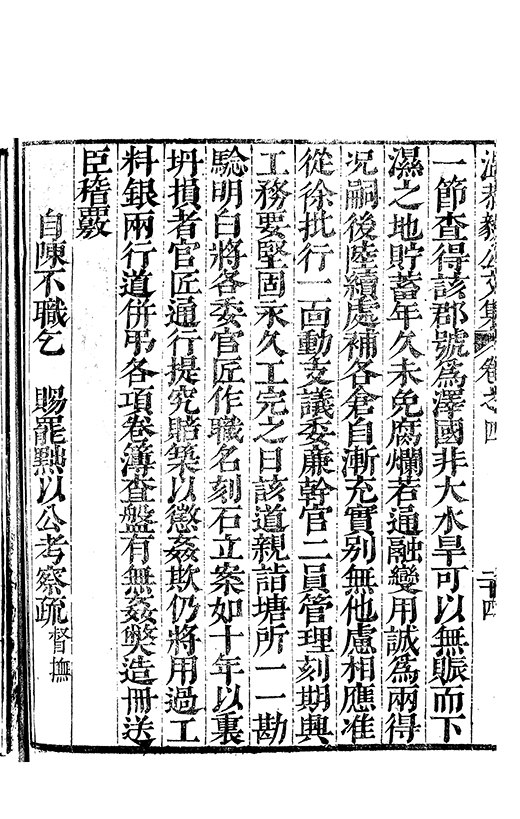 溫恭毅公文集 卷之四 二十四
一節查得該郡號為澤國非大水旱可以無賑而下
濕之地貯蓄年久未免腐爛若通融變用誠為兩得
况嗣後陸續處補各倉自漸充實別無他慮相應准
從徐批行一面動支議委廉幹官二員管理刻期興
工務要堅固永久工完之日該道親詣塘所一一勘
驗明白將各委官匠作職名刻石立案如十年以裏
坍損者官匠通行提究賠築以懲姦欺仍將用過工
料銀兩行道併弔各項卷簿查盤有無姦弊造冊送
臣稽覈
自陳不職乞 賜罷黜以公考察疏 督撫